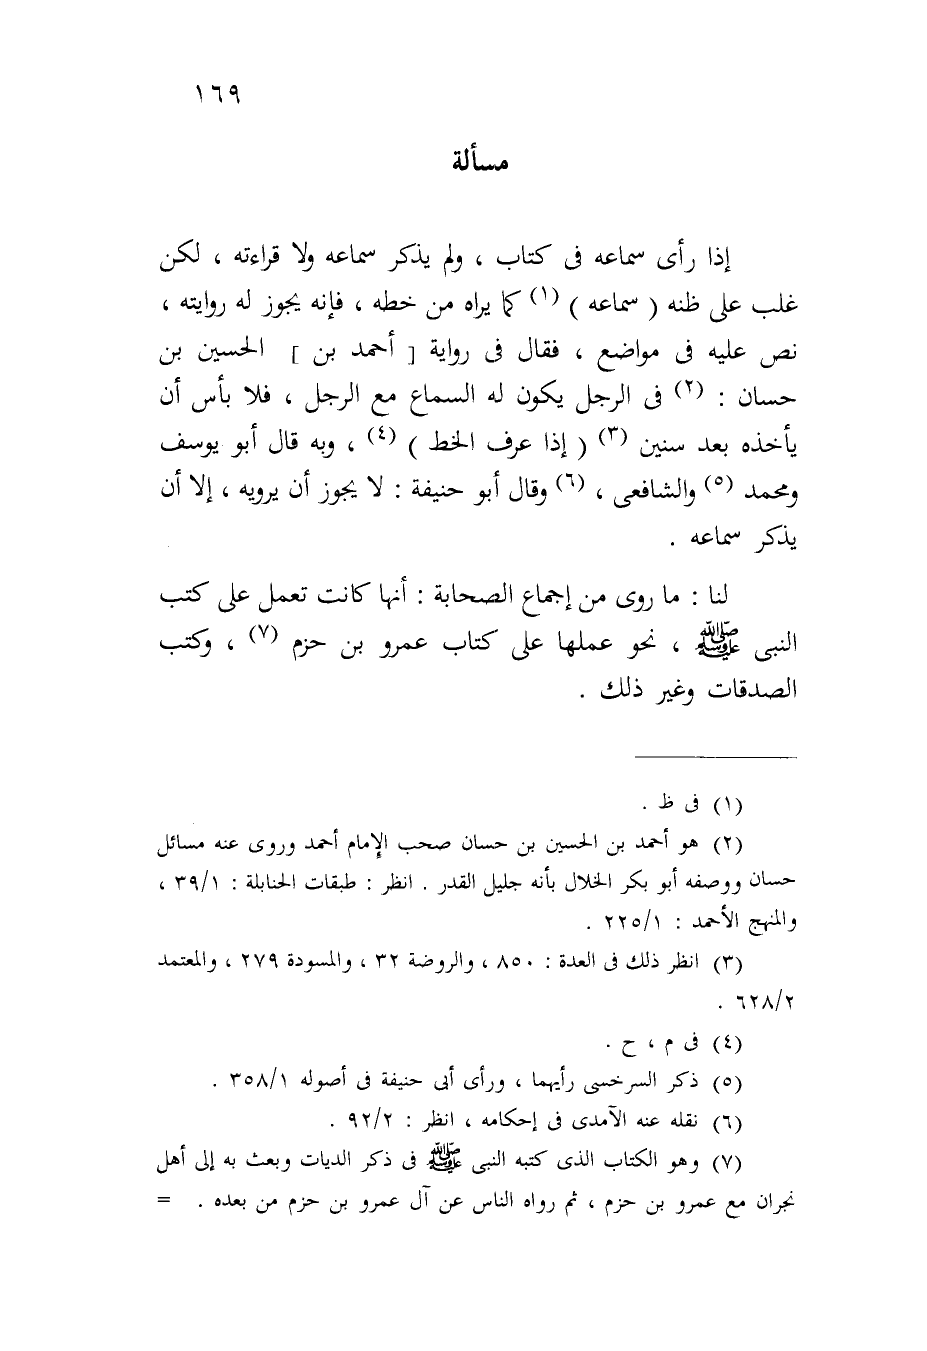 ١٦٩
مسألة
إذا رأى سماعه فى كتاب ، ولم يذكر سماعه ولا قراءته ، لكن
غلب على ظنه ( سماعه ) (١) كما يراه من خطه ، فإنه يجوز له روايته ،
نص عليه فى مواضع ، فقال فى رواية [ أحمد بن ] الحسين بن
حسان : (٢) فى الرجل يكون له السماع مع الرجل ، فلا بأس أن
يأخذه بعد سنين (٣) ( إذا عرف الخط ) (٤) ، وبه قال أبو يوسف
ومحمد (٥) والشافعى ، (٦) وقال أبو حنيفة : لا يجوز أن يرويه ، إلا أن
يذكر سماعه .
لنا : ما روى من إجماع الصحابة : أنها كانت تعمل على كتب
النبى ﷺ ، نحو عملها على كتاب عمرو بن حزم (٧) ، وكتب
الصدقات وغير ذلك .
(١) فى ظ .
(٢) هو أحمد بن الحسين بن حسان صحب الإمام أحمد وروى عنه مسائل
حسان ووصفه أبو بكر الخلال بأنه جليل القدر . انظر : طبقات الحنابلة : ٣٩/١ ،
والمنهج الأحمد : ٢٢٥/١ .
(٣) انظر ذلك فى العدة : ٨٥٠ ، والروضة ٣٢ ، والمسودة ٢٧٩ ، والمعتمد
٦٢٨/٢ .
(٤) فى م ، ح .
(٥) ذكر السرخسى رأيهما ، ورأى أبى حنيفة فى أصوله ٣٥٨/١ .
(٦) نقله عنه الآمدى فى إحكامه ، انظر : ٩٢/٢ .
(٧) وهو الكتاب الذى كتبه النبى ﷺ فى ذكر الديات وبعث به إلى أهل
نجران مع عمرو بن حزم ، ثم رواه الناس عن آل عمرو بن حزم من بعده . =